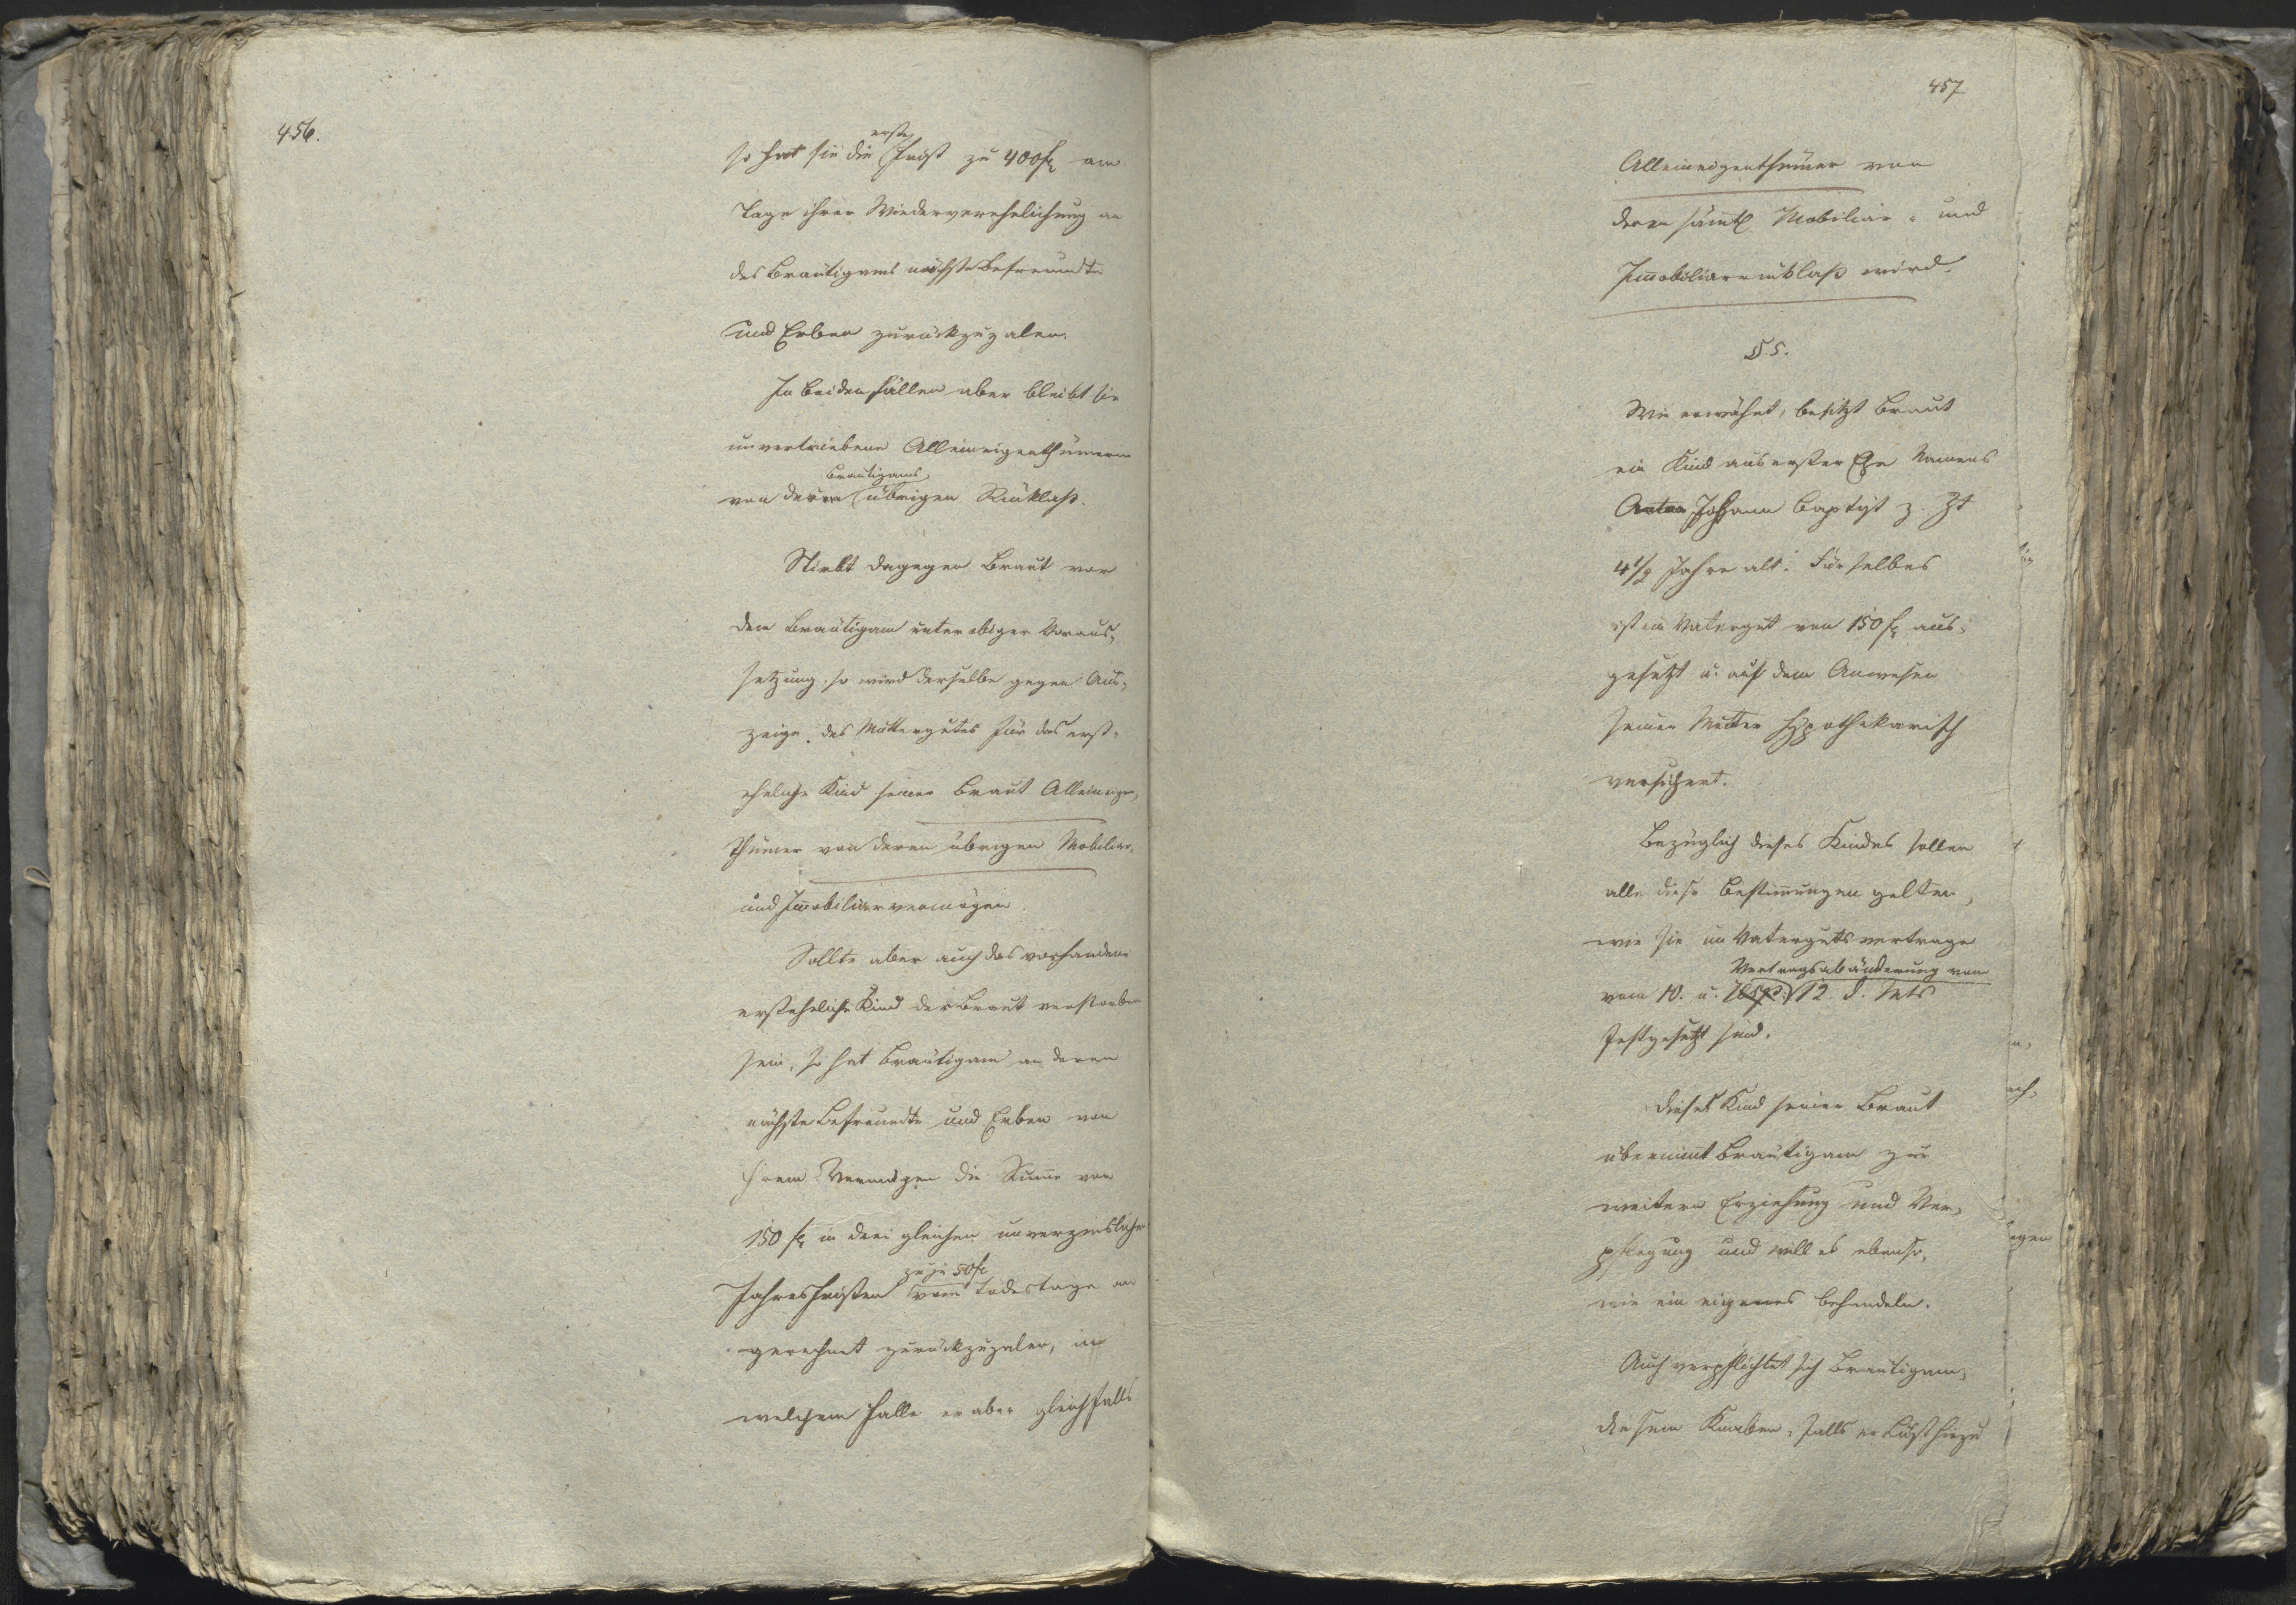 456.
erste
so hat sie die Frist zu 400 f am
Tage ihrer Wiederverehelichung an
des Bräutigams nächste Befreundte
und Erben zurückzuzalen.
In beiden Fällen aber bleibt sie
unvertriebene Alleineigenthümerin
Bräutigams
von deren übrigen Rücklaß.
Stirbt dagegen Braut vor
dem Bräutigam unter obiger Voraus-
setzung, so wird derselbe gegen Aus-
zeige des Muttergutes für das erst-
eheliche Kind seiner Braut Alleineigen-
thümer von deren übrigen Mobiliar-
und Immobiliarvermögen.
Sollte aber auch das vorhandene
ersteheliche Kind der Braut verstorben
sein, so hat Bräutigam an deren
nächste Befreundte und Erben von
ihrem Vermögen die Summe von
150 f in drei gleichen unverzinslichen
zu je 50 f
Jahresfristen vom Todestage an
gerechnet zurückzuzalen, in
welchem Falle er aber gleichfalls
457
Alleineigenthümer von
deren sämtl Mobiliar- und
Immobiliarrücklaß wird.
§. 5.
Wie erwähnt, besitzt Braut
ein Kind aus erster Ehe Namens
Anton Johann Baptist z. Zt
4 1/2 Jahre alt. Für selbes
ist ein Vatergut von 150 f aus-
gesetzt u. auf dem Anwesen
seiner Mutter hypothekarisch
versichert.
Bezüglich dieses Kindes sollen
alle diese Bestimmungen gelten,
wie sie im Vatergutsvertrage
Vertragsabänderung vom
vom 10. u. 12. d. Mts
festgesetzt sind.
Dieses Kind seiner Braut
übernimmt Bräutigam zur
weitern Erziehung und Ver-
pflegung und will es ebenso,
wie ein eigenes behandeln.
Auch verpflichtet sich Bräutigam,
diesem Knaben, falls er Lust hiezu